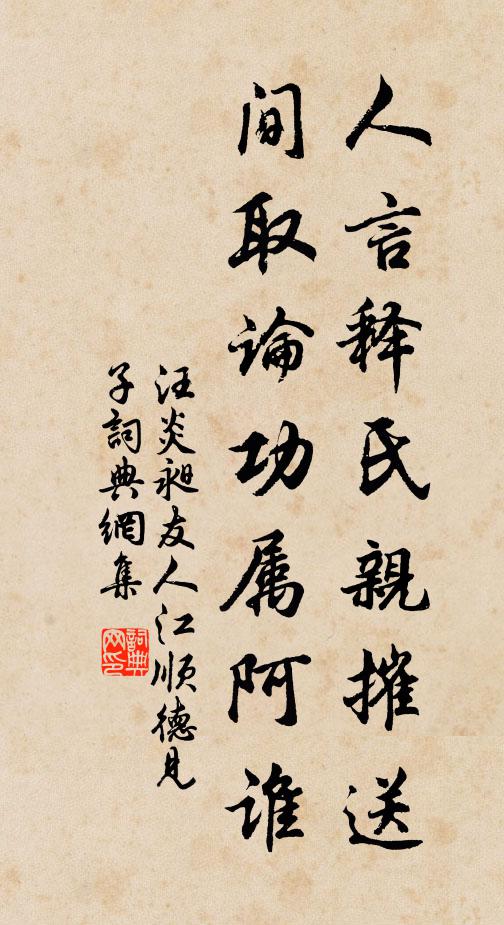 人言释氏親擁送
間取論功属阿谁
汪炎昶友人江順德見
子詞典網集
詞典网印